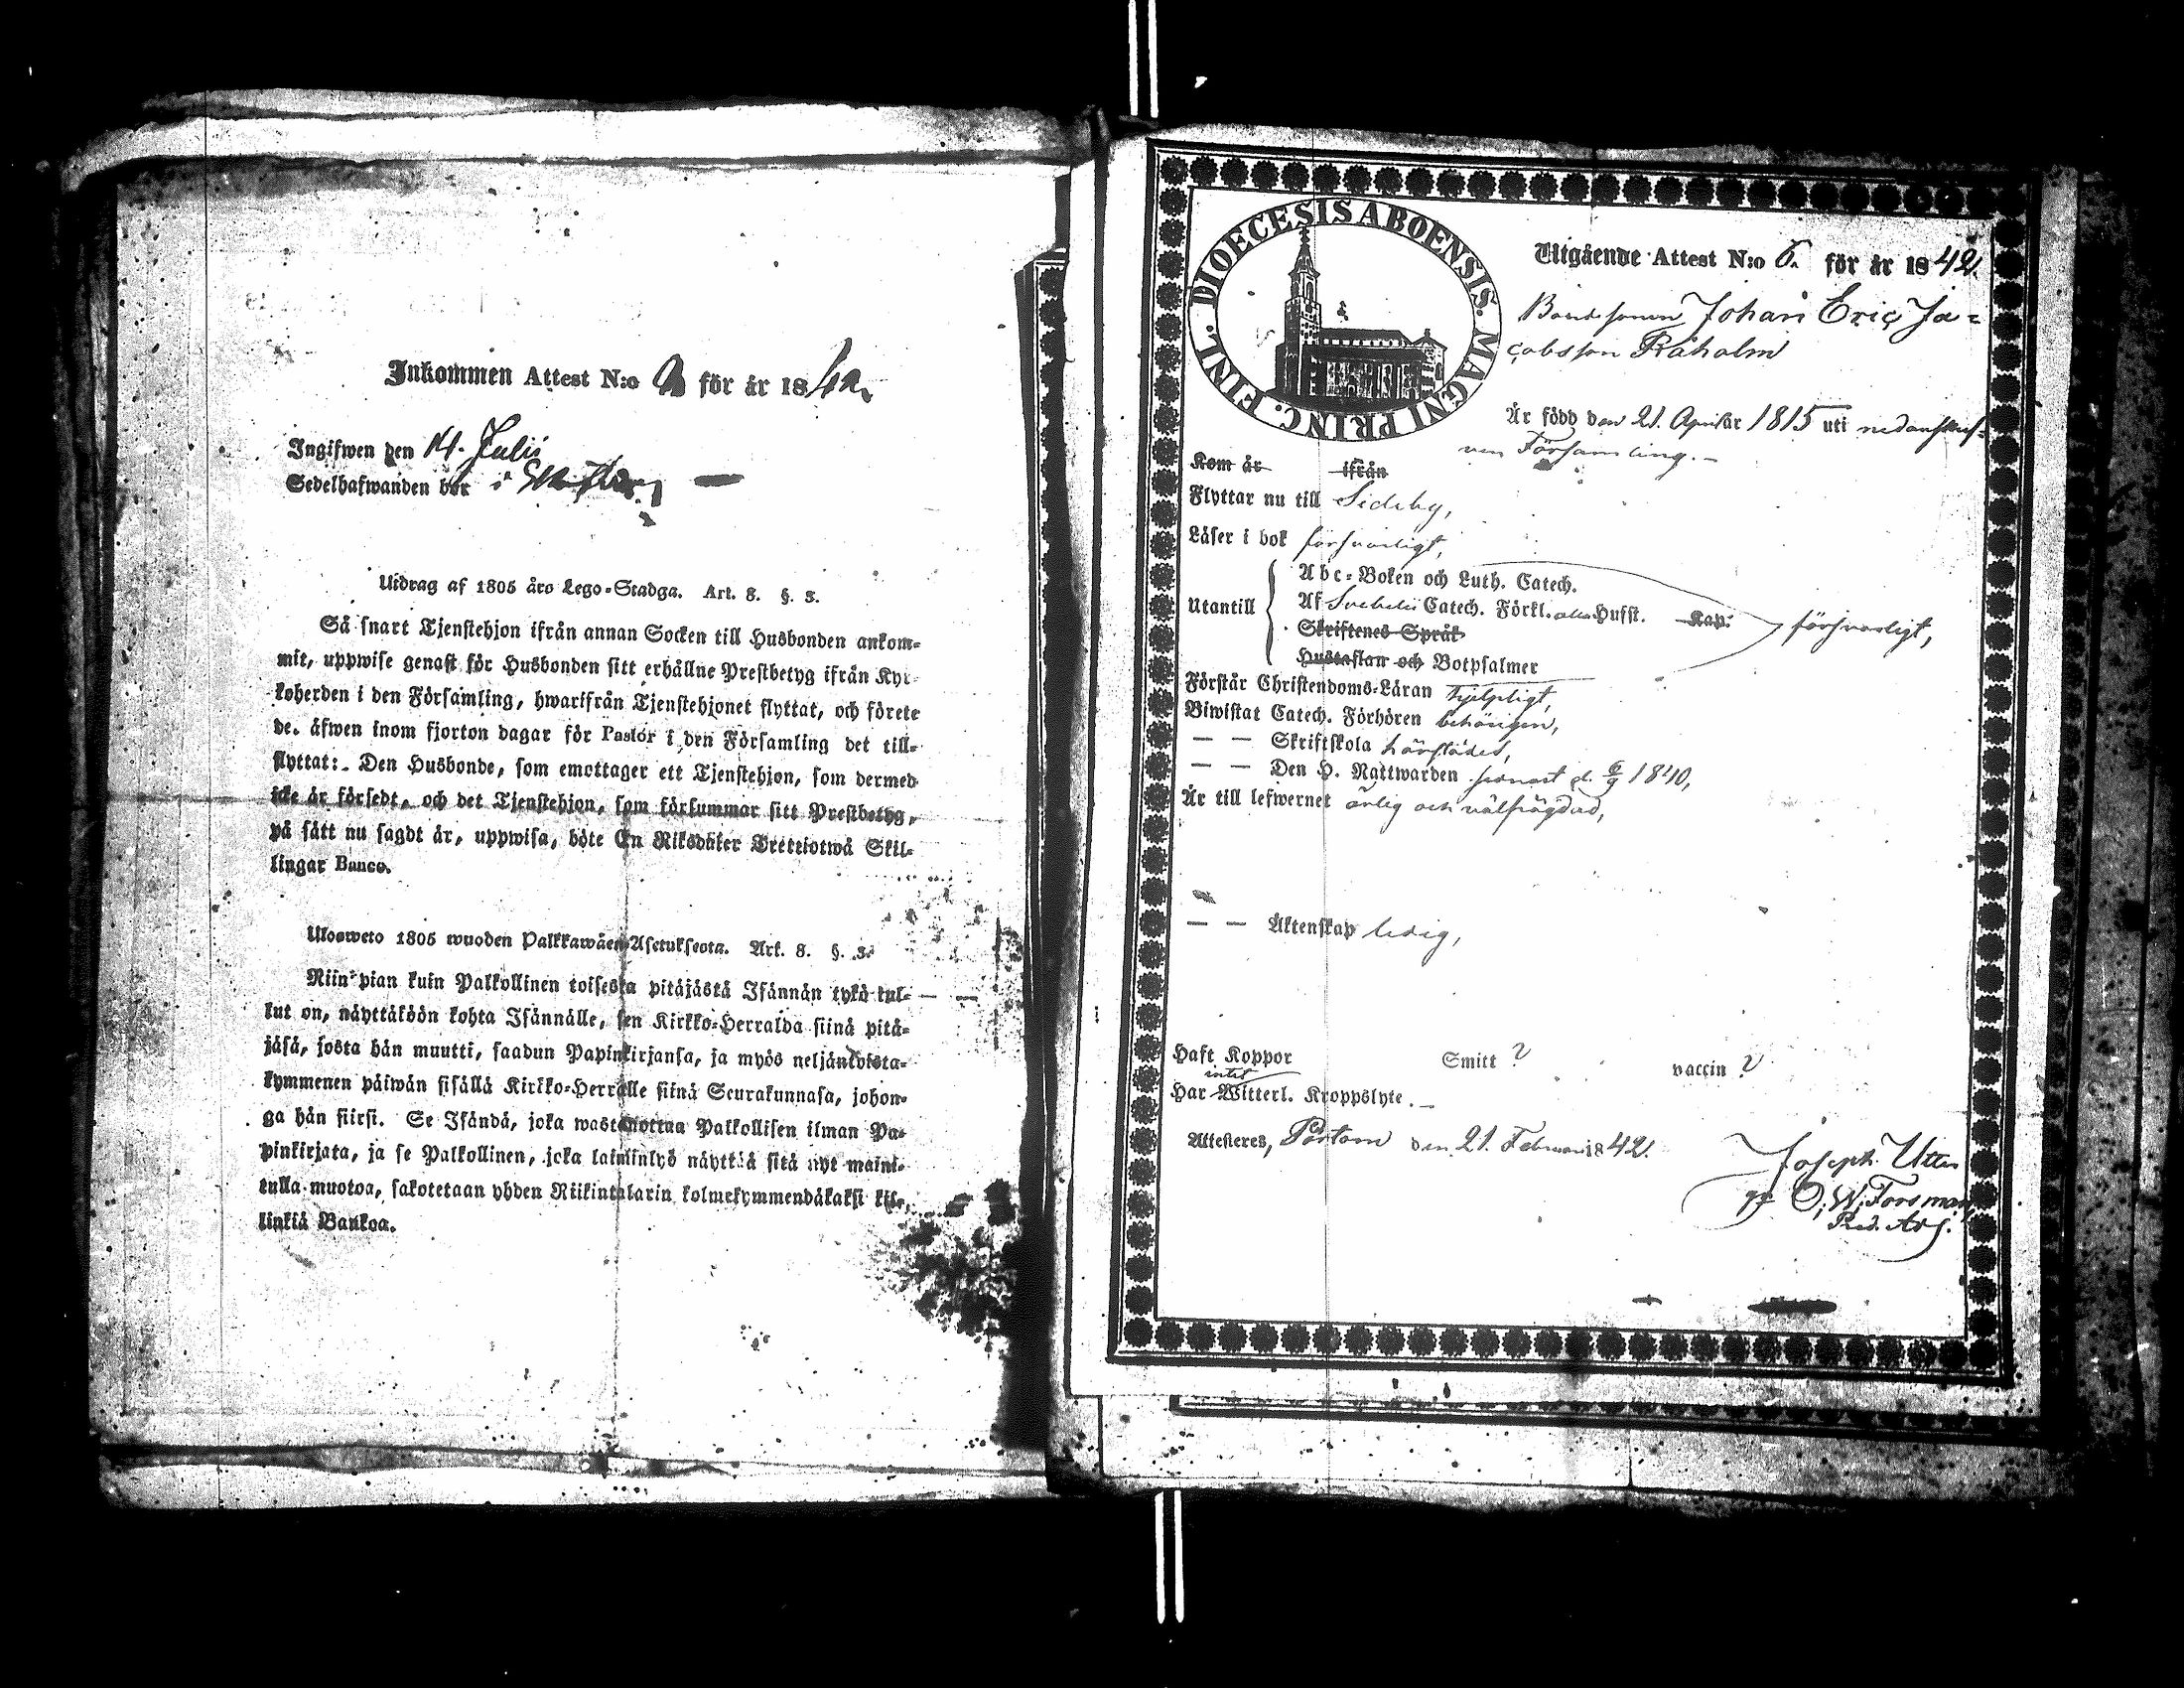 Inkommen Attest N:o för år 18
Ingifwen den 14. Julii
Sedelhafwanden bor i
Utdrag af 1805 års Lego-Stadga. Art. 8. §. 3.
Så snart Tjenstehjon ifrån annan Socken till Husbonden ankom-
mit, uppwise genast för Husbonden sitt erhållne Prestbetyg ifrån Kyr-
koherden i den Församling, hwarifrån Tjenstehjonet flyttat, och förete
de. äfwen inom fjorton dagar för Pastor i den Församling det till-
flyttat: Den Husbonde, som emottager ett Tjenstehjon, som dermed
icke är försedt, och det Tjenstehjon, som försummar sitt Prestbetyg,
på sätt nu sagdt är, uppwisa, böte En Riksdaler Trettiotwå Skil-
lingar Banco.
Ulosweto 1805 wuoden Palkkawäen-Asetuksesta. Art. 8. §. 3.
Niin pian kuin Palkollinen toisesta pitäjästä Isännän tykö tul-
lut on, näyttäköön kohta Isännälle, sen Kirkko-Herralda siinä pitä-
jäsä, josta hän muutti, saadun Papinkirjansa, ja myös neljäntoista-
kymmenen päiwän sisällä Kirkko-Herralle siinä Seurakunnasa, johon-
ga hän siirsi. Se Isändä, joka wastanottaa Palkollisen ilman Pa-
pinkirjata, ja se Palkollinen, joka laiminlyö näyttää sitä nyt maini-
tulla muotoa, sakotetaan yhden Riikintalarin kolmekymmendäkaksi kil-
linkiä Bankoa.
DIOECESIS ABOENSIS. MAGNI PRINC. FINL.
Utgående Attest N:o 6. för år 1842.
Bondesonen Johan Eric Ja-
cobsson Råholm
Är född den 21. April år 1815 uti nedanskrif-
ven Församling.
Kom år ifrån
Flyttar nu till Sideby,
Läser i bok försvarligt,
Abc-Boken och Luth. Catech.
Utantill Af Svebelii Catech. Förkl. Hufst. Kap. försvarligt,
Skriftenes Språk
Hustaflan och Botpsalmer
Förstår Christendoms-Läran hjelpligt,
Biwistat Catech. Förhören behörigen,
— — Skriftskola härstädes,
— — Den H. Nattwarden senast d. 6/9 1840,
Är till lefwernet ärlig och välfrägdad,
— — Äktenskap ledig,
Haft Koppor Smitt ? vaccin ?
intet
Har Witterl. Kroppslyte.
Attesteres, Pörtom den 21. Februari 1842.
Joseph
O. W. Forsman